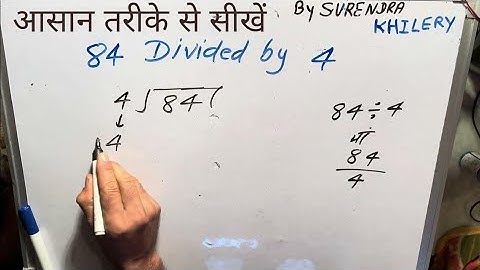 आसान तरीके से सीखें By SURENDRA
KHILERY
84 Divided by 4
4 ) 84 (
↓
4
84 ÷ 4
या
84
4